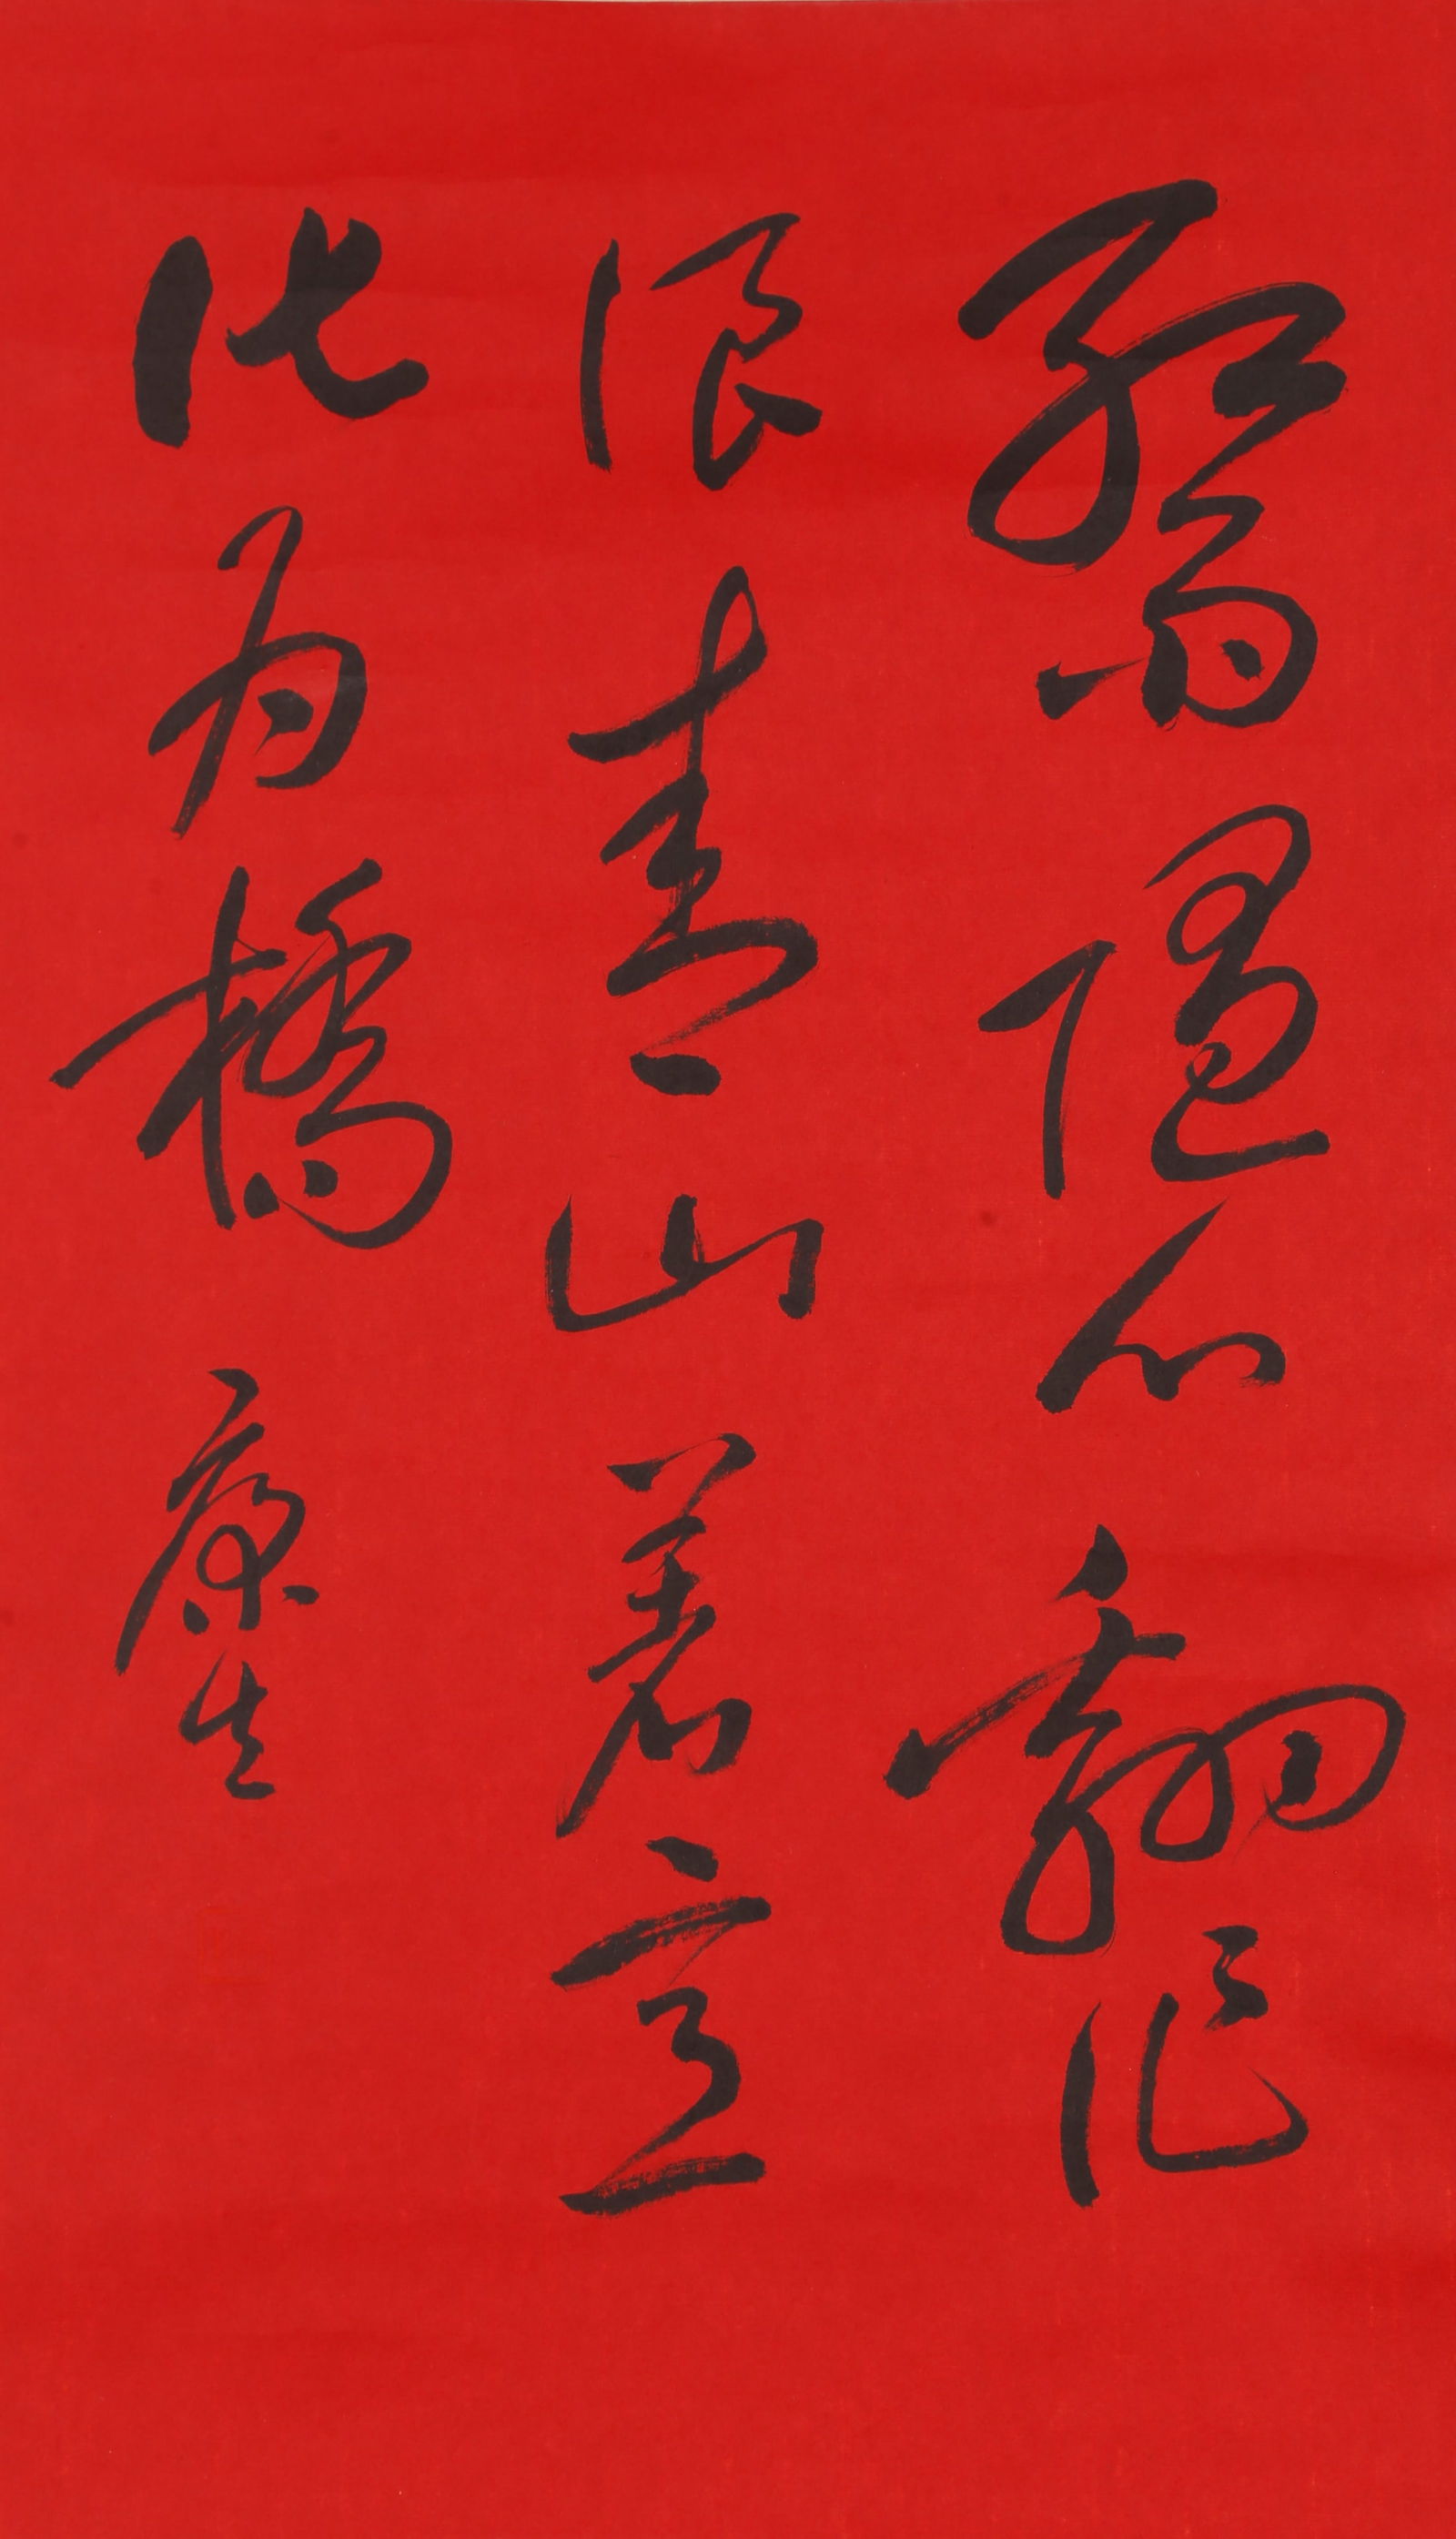 紅雨随心翻作
浪青山着意
化为橋 康生